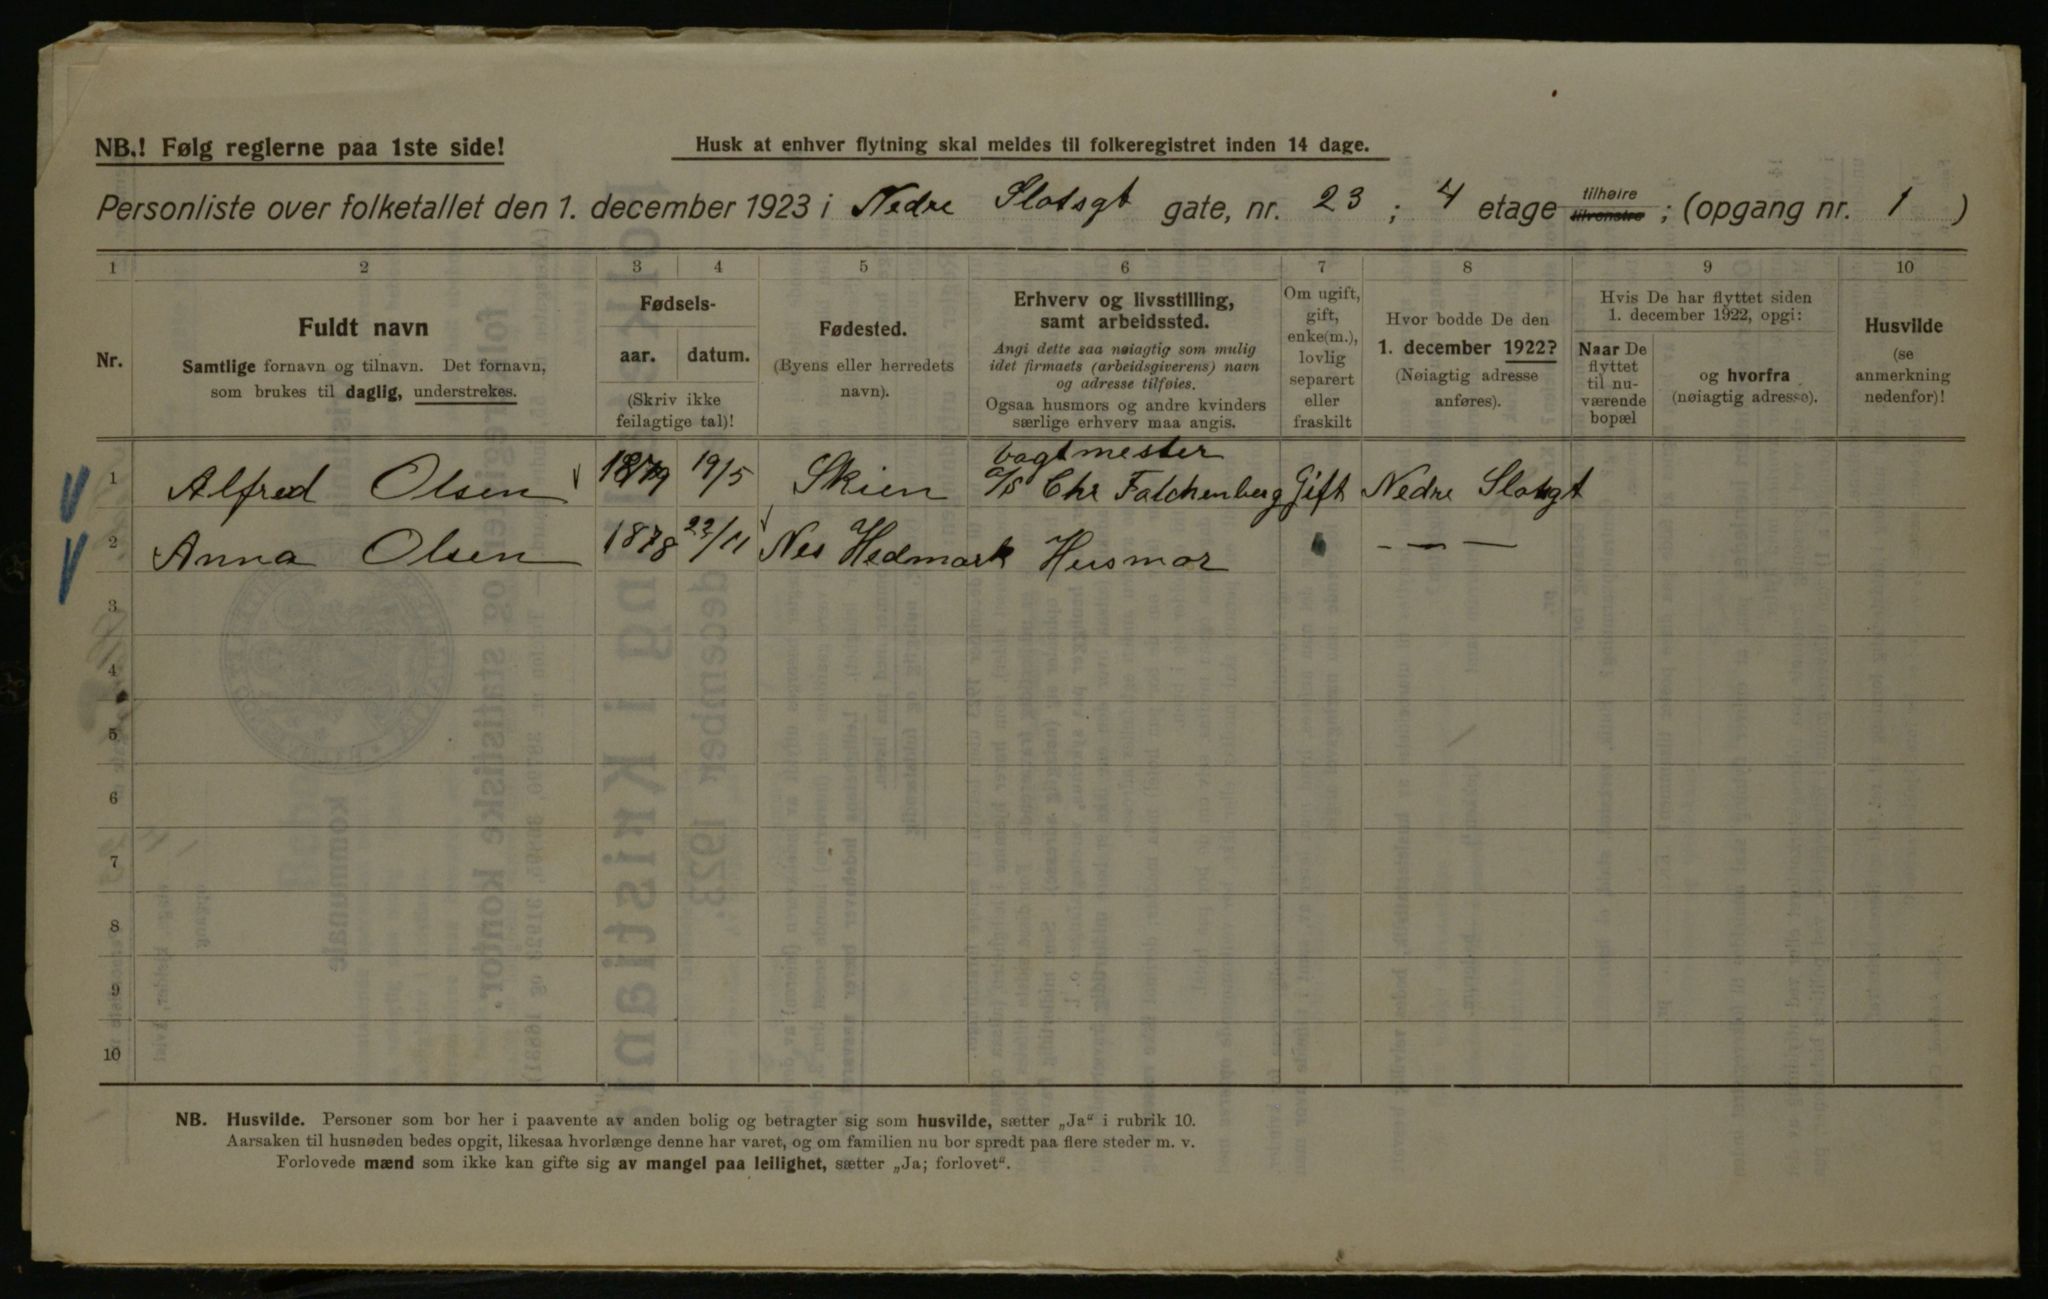 NB.! Følg reglerne paa 1ste side!
Husk at enhver flytning skal meldes til folkeregistret inden 14 dage.
Personliste over folketallet den 1. december 1923 i Nedre Slotsgt gate, nr. 23 ; 4 etage tilhøire tilvenstre ; (opgang nr. 1 )
1 2 3 4 5 6 7 8 9 10
Nr.
Fuldt navn
Samtlige fornavn og tilnavn. Det fornavn,
som brukes til daglig, understrekes.
Fødsels-
aar. datum.
(Skriv ikke
feilagtige tal)!
Fødested.
(Byens eller herredets
navn).
Erhverv og livsstilling,
samt arbeidssted.
Angi dette saa nøiagtig som mulig
idet firmaets (arbeidsgiverens) navn
og adresse tilføies.
Ogsaa husmors og andre kvinders
særlige erhverv maa angis.
Om ugift,
gift,
enke(m.),
lovlig
separert
eller
fraskilt
Hvor bodde De den
1. december 1922?
(Nøiagtig adresse
anføres).
Hvis De har flyttet siden
1. december 1922, opgi:
Naar De
flyttet
til nu-
værende
bopæl
og hvorfra
(nøiagtig adresse).
Husvilde
(se
anmerkning
nedenfor)!
vagtmester
1 Alfred Olsen 1879 19/5 Skien a/s Chr Falchenberg Gift Nedre Slotsgt
2 Anna Olsen 1878 22/11 Nes Hedmark Husmor - — —
3
4
5
6
7
8
9
10
NB. Husvilde. Personer som bor her i paavente av anden bolig og betragter sig som husvilde, sætter „Ja“ i rubrik 10.
Aarsaken til husnøden bedes opgit, likesaa hvorlænge denne har varet, og om familien nu bor spredt paa flere steder m. v.
Forlovede mænd som ikke kan gifte sig av mangel paa leilighet, sætter „Ja; forlovet“.